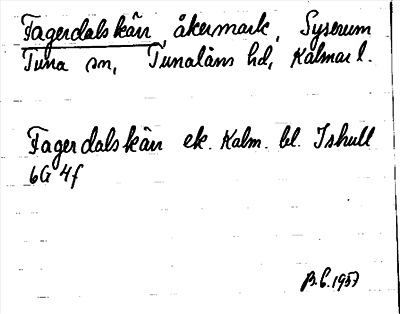 Fagerdalskärr åkermark, Syserum
Tuna sn, Tunaläns hd, Kalmar l.
Fagerdalskärr ek. Kalm. bl. Ishult
6G 4f
B.C. 1957